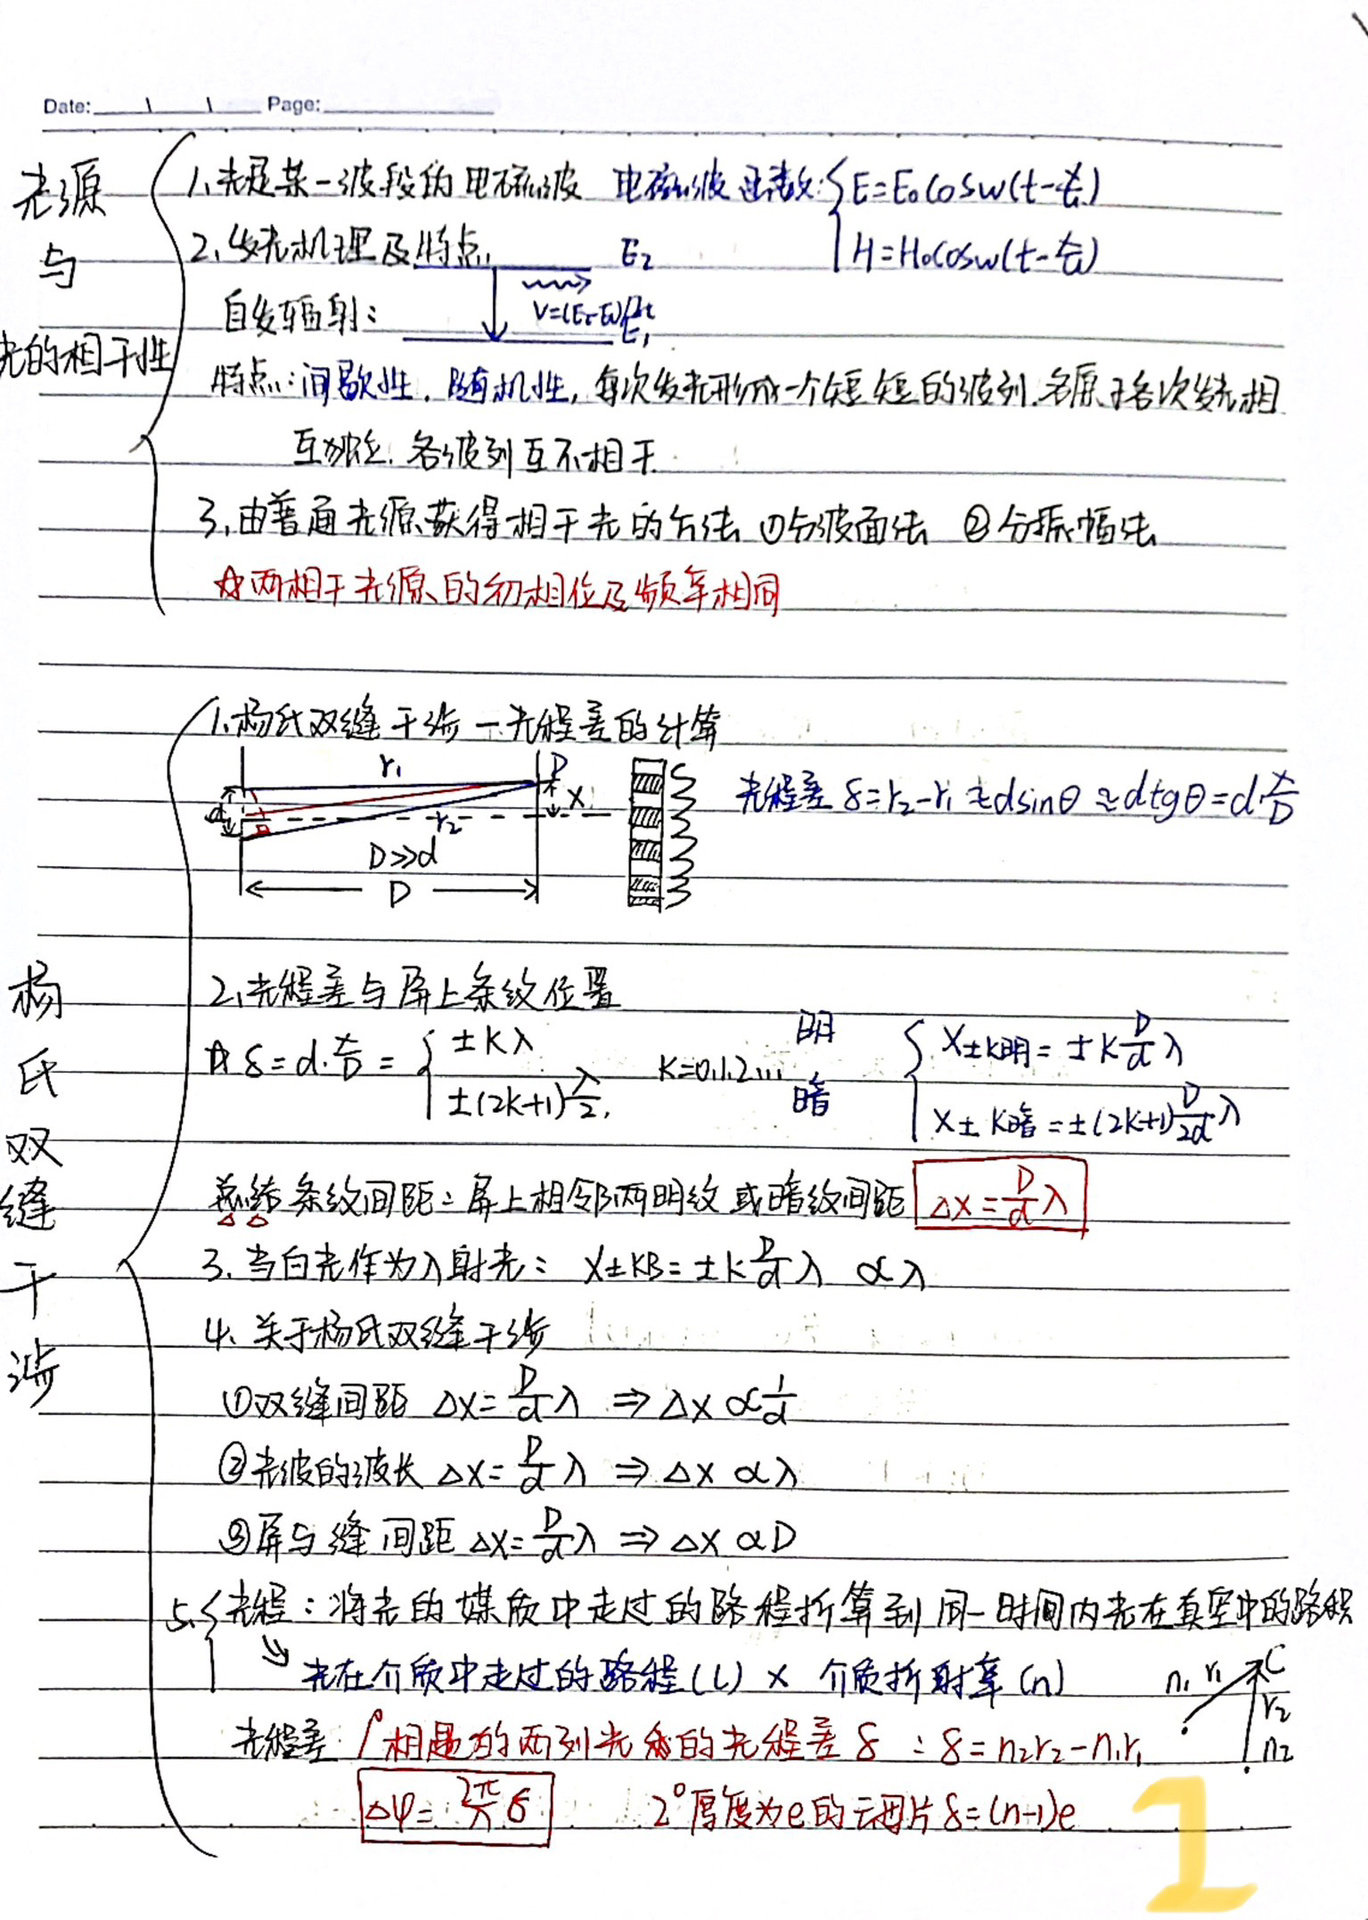 Date: \ \ Page:
光源
与
光的相干性
1.光是某一波段的电磁波 电磁波函数: E=E₀cosw(t-x/u)
H=H₀cosw(t-x/u)
2.发光机理及特点. E₂
自发辐射: ν=(E₂-E₁)/h E₁
特点:间歇性.随机性,每次发光形成一个短短的波列.各原子各次发光相
互独立.各波列互不相干.
3.由普通光源获得相干光的方法 ①分波面法 ②分振幅法
☆两相干光源的初相位及频率相同
杨氏双缝干涉
1.杨氏双缝干涉—光程差的计算
r₁ P
d x
r₂
D>>d
D
光程差 δ=r₂-r₁≈dsinθ≈dtgθ=d·x/D
2.光程差与屏上条纹位置
☆δ=d·x/D= ±kλ 明
±(2k+1)λ/2. 暗
k=0.1.2...
X±k明=±k D/d λ
X±k暗=±(2k+1) D/2d λ
总结 条纹间距:屏上相邻两明纹或暗纹间距 Δx=D/d λ
3.当白光作为入射光: X±kB=±k D/d λ ∝λ
4.关于杨氏双缝干涉
①双缝间距 Δx=D/d λ ⇒Δx∝1/d
②光波的波长 Δx=D/d λ ⇒Δx∝λ
③屏与缝间距 Δx=D/d λ ⇒Δx∝D
5.光程:将光的媒质中走过的路程折算到同一时间内光在真空中的路程
↘光在介质中走过的路程(L)×介质折射率(n)
n₁ r₁ C
r₂
n₂
光程差: 1°相遇的两列光的光程差δ:δ=n₂r₂-n₁r₁
Δφ=2π/λ δ 2°厚度为e的云母片δ=(n-1)e
1